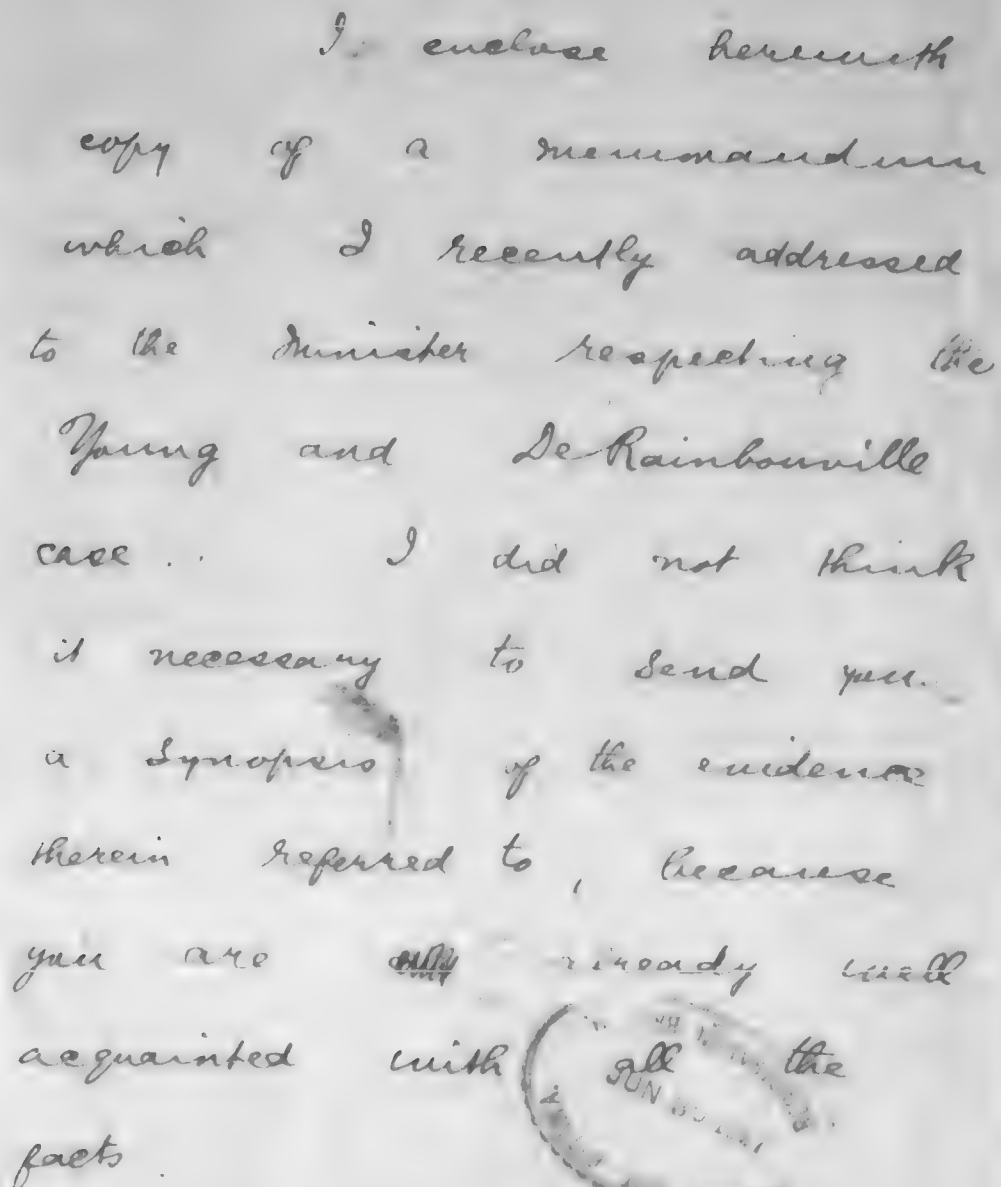 I enclose herewith
copy of a memorandum
which I recently addressed
to the Minister respecting the
Young and De Rainbouville
case. I did not think
it necessary to send you
a Synopsis of the evidence
therein referred to, because
you are already well
acquainted with all the
facts.
JUN